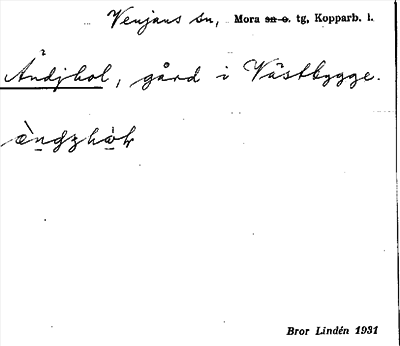 Venjans sn, Mora sn o. tg, Kopparb. l.
Ändjhol, gård i Västbygge.
Bror Lindén 1931